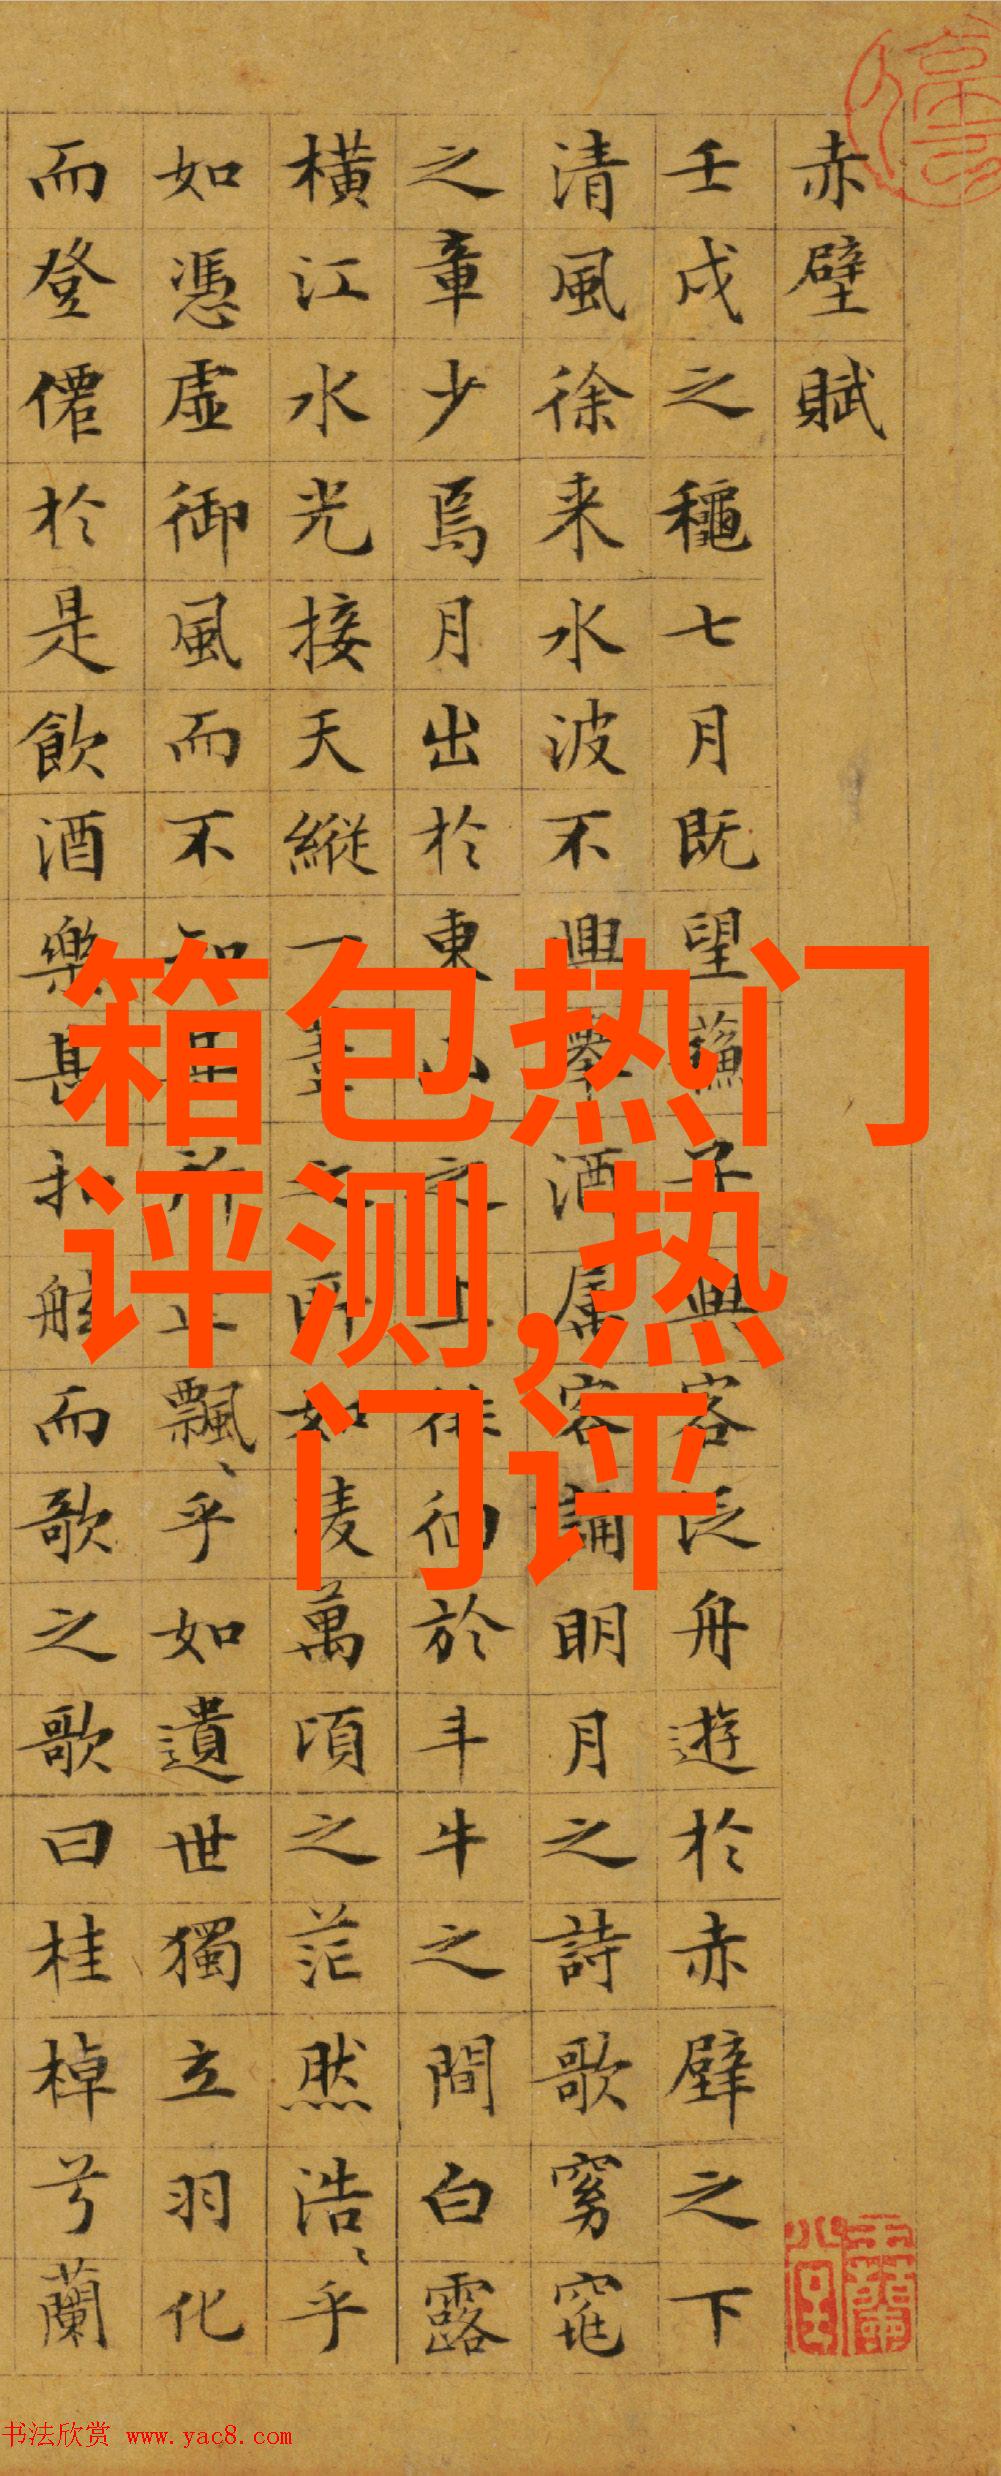 赤壁賦
壬戌之穐七月既望蘓子與客泛舟遊於赤壁之下
清風徐来水波不興舉酒属客誦明月之詩歌窈窕
之章少焉月出於東山之上徘徊於斗牛之間白露
橫江水光接天縱一葦之所如凌萬頃之茫然浩〻乎
如憑虛御風而不知其所止飄〻乎如遺世獨立羽化
而登僊於是飲酒樂甚扣舷而歌之歌曰桂棹兮蘭
箱包热门
评测,热
门评
书法欣赏 www.yac8.com